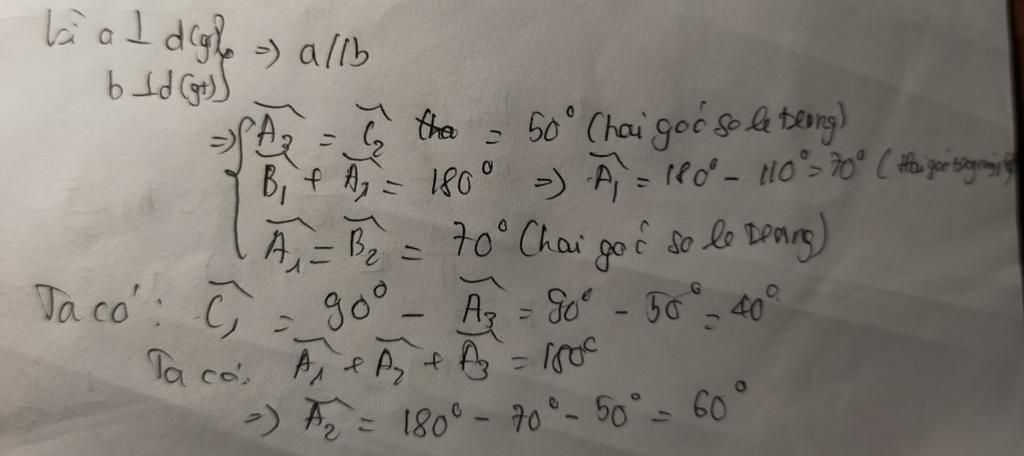 là a ⊥ d (gt)
b ⊥ d (gt) } => a // b
=> { Â3 = Ĉ2 = 50° (hai góc so le trong)
B̂1 + Â2 = 180° => Â1 = 180° - 110° = 70° (
Â1 = B̂2 = 70° (hai góc so le trong)
Ta có: Ĉ1 = 90° - Â3 = 90° - 50° = 40°
Ta có: Â1 + Â2 + Â3 = 180°
=> Â2 = 180° - 70° - 50° = 60°